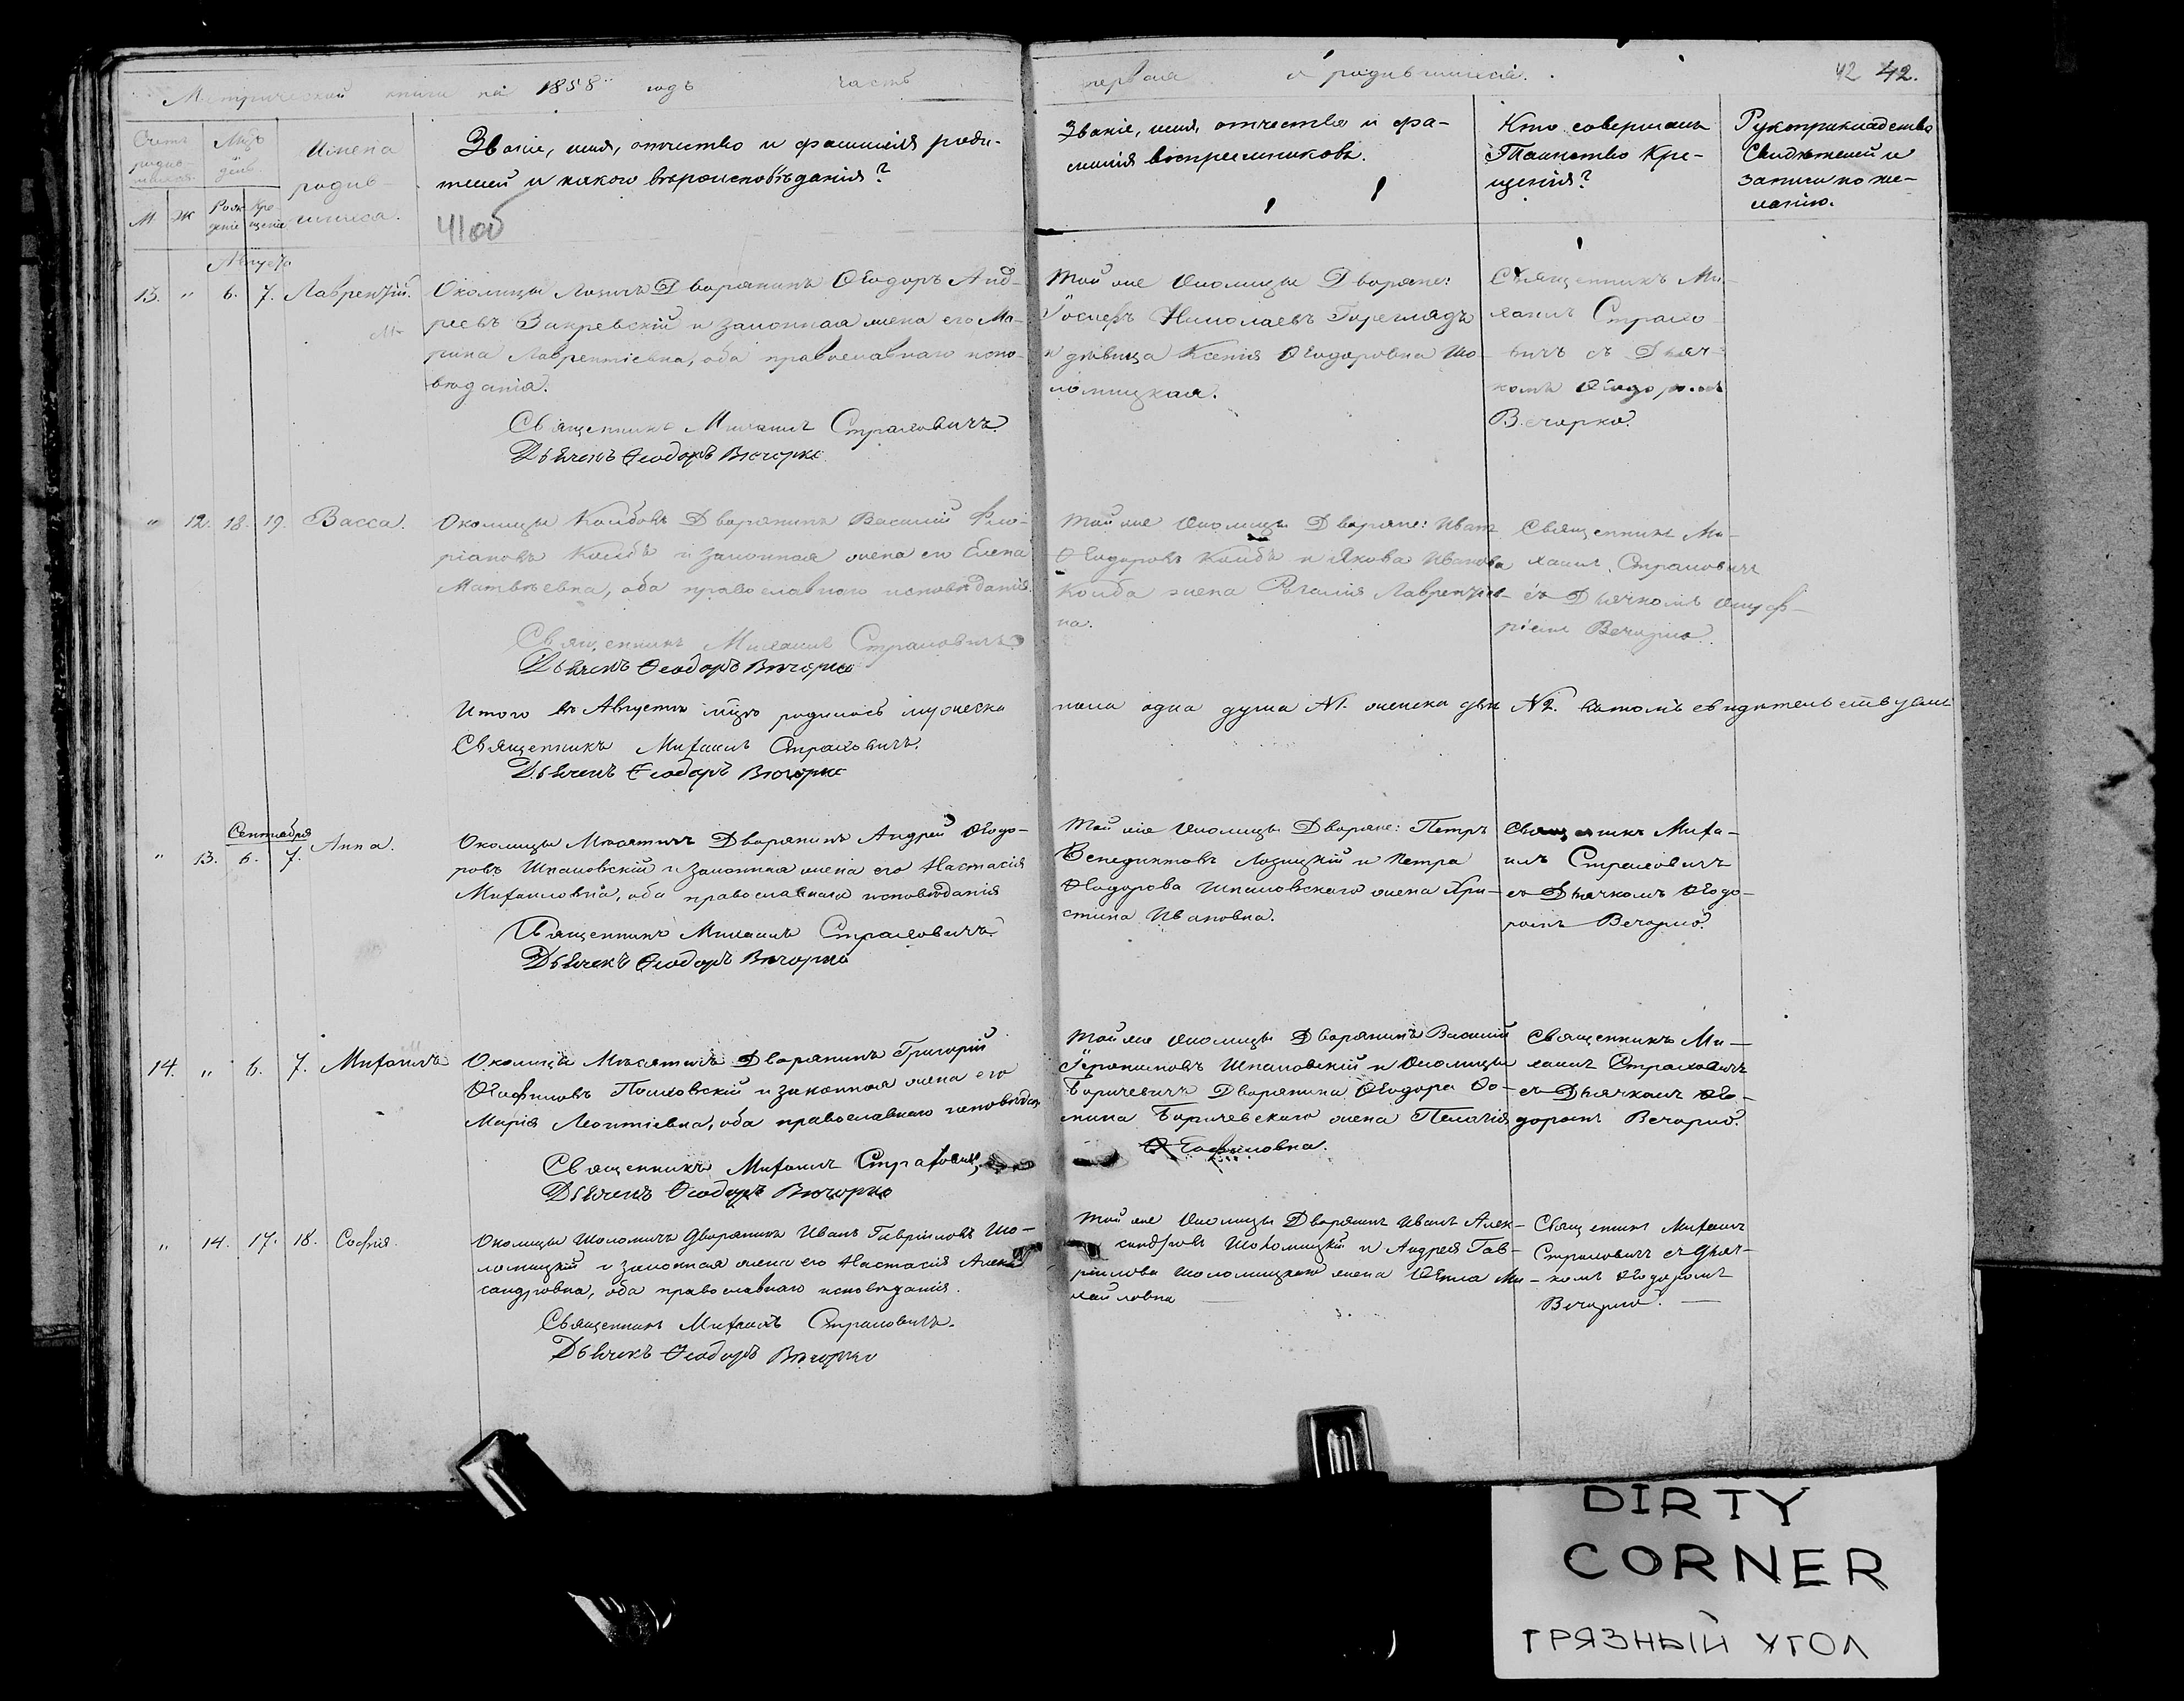 Метрической книги на 1858 годъ часть
первая о родившихся.
42 42.
Счетъ родив-шихся.
Мцъ и день
Имена родив-шихся.
М. Ж
Рож-деніе Кре-щеніе
Званіе, имя, отчество и фамилія роди-
телей и какого вѣроисповѣданія?
41об
Званіе, имя, отчество и фа-
милія воспреемниковъ.
Кто совершалъ
Таинство Кре-
щенія?
Рукоприкладство
Свидѣтелей и
записи по же-
ланію.
Августъ
13. " 6. 7. Лаврентій.
Околицы Дворянинъ Ѳеодоръ Анд-
реевъ Закревскій и законная жена его Ма-
рина Лаврентіевна, оба православнаго испо-
вѣданія.
Священникъ Михаилъ Страховичъ
Дьячекъ Ѳеодоръ Вечорко
Той же Околицы Дворяне:
Іосифъ Николаевъ
и дѣвица Ксенія Ѳеодоровна Шо-
ломицкая.
Священникъ Ми-
хаилъ Страхо-
вичъ съ Дьяч-
комъ Ѳеодоромъ
Вечорко.
" 12. 18. 19. Васса.
Околицы Дворянинъ Василій Фло-
ріановъ и законная жена его Елена
Матвѣевна, оба православнаго исповѣданія.
Священникъ Михаилъ Страховичъ
Дьячекъ Ѳеодоръ Вечорко
Той же Околицы Дворяне: Иванъ
Ѳеодоровъ и Якова Иванова
жена Лаврентіев-
на.
Священникъ Ми-
хаилъ Страховичъ
съ Дьячкомъ
Вечорко.
Итого въ Августѣ мцѣ родилось мужеска
пола одна душа №1. женска двѣ №2. въ томъ свидѣтельствуемъ
Священникъ Михаилъ Страховичъ.
Дьячекъ Ѳеодоръ Вечорко
Сентября
" 13. 6. 7. Анна.
Околицы Дворянинъ Андрей Ѳеодо-
ровъ Шпаковскій и законная жена его Настасія
Михаиловна, оба православнаго исповѣданія
Священникъ Михаилъ Страховичъ
Дьячекъ Ѳеодоръ Вечорко
Той же Околицы Дворяне: Петръ
Венедиктовъ Лозицкій и Петра
Ѳеодорова Шпаковскаго жена Хри-
стина Ивановна.
Священникъ Миха-
илъ Страховичъ
съ Дьячкомъ Ѳеодо-
ромъ Вечорко.
14. " 6. 7. Михаилъ
Околицы Дворянинъ Григорій
Ѳеофиловъ и законная жена его
Марія Леонтіевна, оба православнаго исповѣданія
Священникъ Михаилъ Страховичъ
Дьячекъ Ѳеодоръ Вечорко
Той же Околицы Дворянинъ Василій
Шпаковскій и Околицы
Боричевичъ Дворянина Ѳеодора Ѳо-
мина Боричевскаго жена Пелагія
Ѳеофиловна.
Священникъ Ми-
хаилъ Страховичъ
съ Дьячкомъ Ѳео-
доромъ Вечорко.
" 14. 17. 18. Софія.
Околицы Шоломичъ Дворянинъ Иванъ Гавріиловъ Шо-
ломицкій и законная жена его Настасія Алек-
сандровна, оба православнаго исповѣданія.
Священникъ Михаилъ Страховичъ.
Дьячекъ Ѳеодоръ Вечорко
Той же Околицы Дворянинъ Иванъ Алек-
сандровъ Шоломицкій и Андрея Гав-
ріилова Шоломицкаго жена Ѳекла Ми-
хайловна
Священникъ Михаилъ
Страховичъ съ Дьяч-
комъ Ѳеодоромъ
Вечорко.
DIRTY
CORNER
ГРЯЗНЫЙ УГОЛ